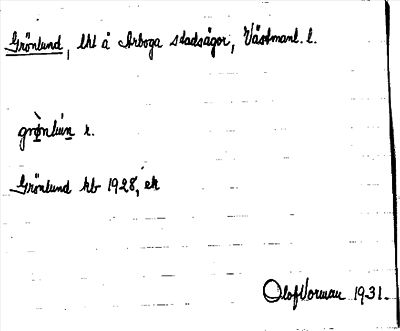 Grönlund, lht å Arboga stadsägor, Västmanl. l.
Grönlund kb 1928, ek
Olof Norman 1931.